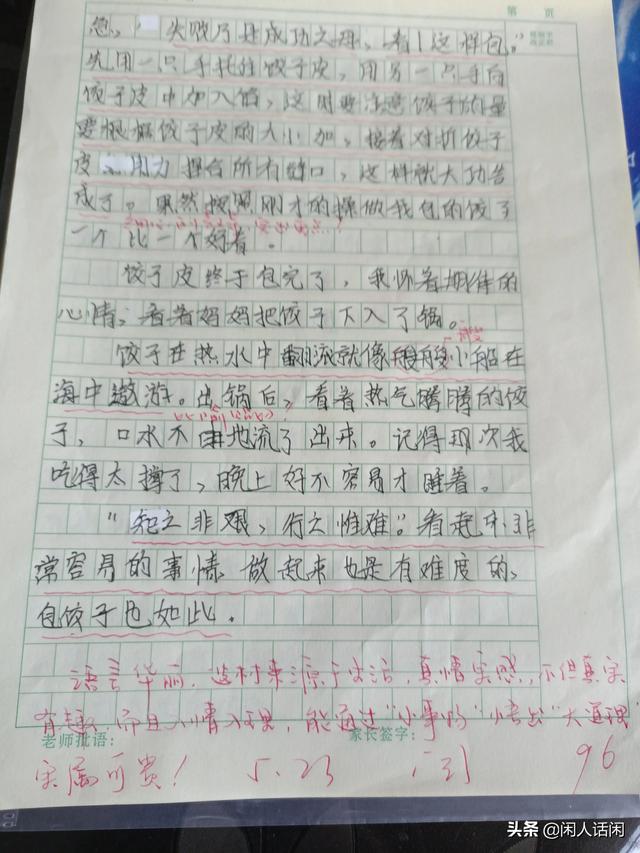 第 页
急，“失败乃是成功之母，看！这样包。”
先用一只手托住饺子皮，用另一只手向
饺子皮中加入馅，这时要注意饺子的量
要根据饺子皮的大小加，接着对折饺子
皮、用力捏合所有缝口，这样就大功告
成了。果然按照刚才的操做我包的饺子
一个比一个好看。
饺子皮终于包完了，我怀着期待的
心情，看着妈妈把饺子下入了锅。
饺子在热水中翻滚就像艘艘小船在
海中遨游。出锅后，看着热气腾腾的饺
子，口水不由地流了出来。记得那次我
吃得太撑了，晚上好不容易才睡着。
“知之非艰，行之惟难。”看起来非
常容易的事情，做起来也是有难度的，
包饺子也如此。
语言华丽，选材来源于生活，真情实感，不但真实
有趣，而且入情入理，能通过“小事例”悟出“大道理”
老师批语： 家长签字：
实属可贵！ 5.23 96
头条 @闲人话闲